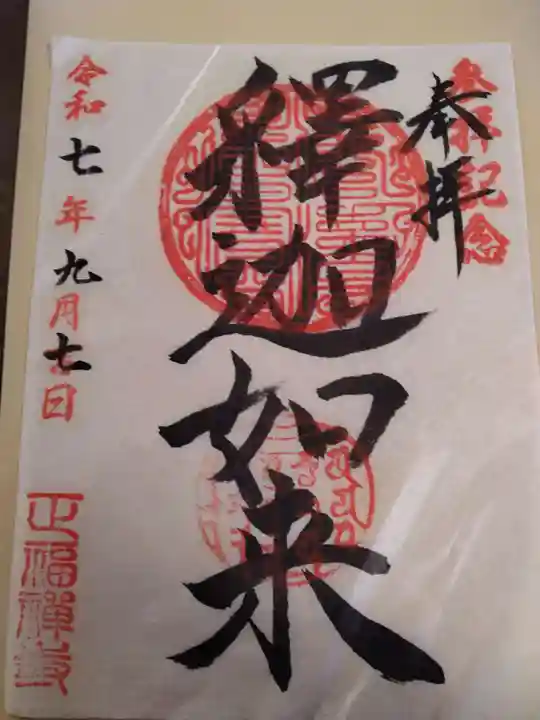 参拝記念
奉拝
釋迦如来
令和七年九月七日
正福禅寺